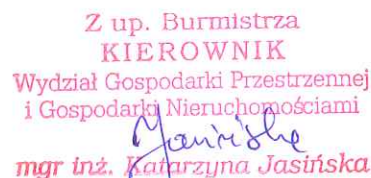 Z up. Burmistrza
KIEROWNIK
Wydział Gospodarki Przestrzennej
i Gospodarki Nieruchomościami
mgr inż. Katarzyna Jasińska